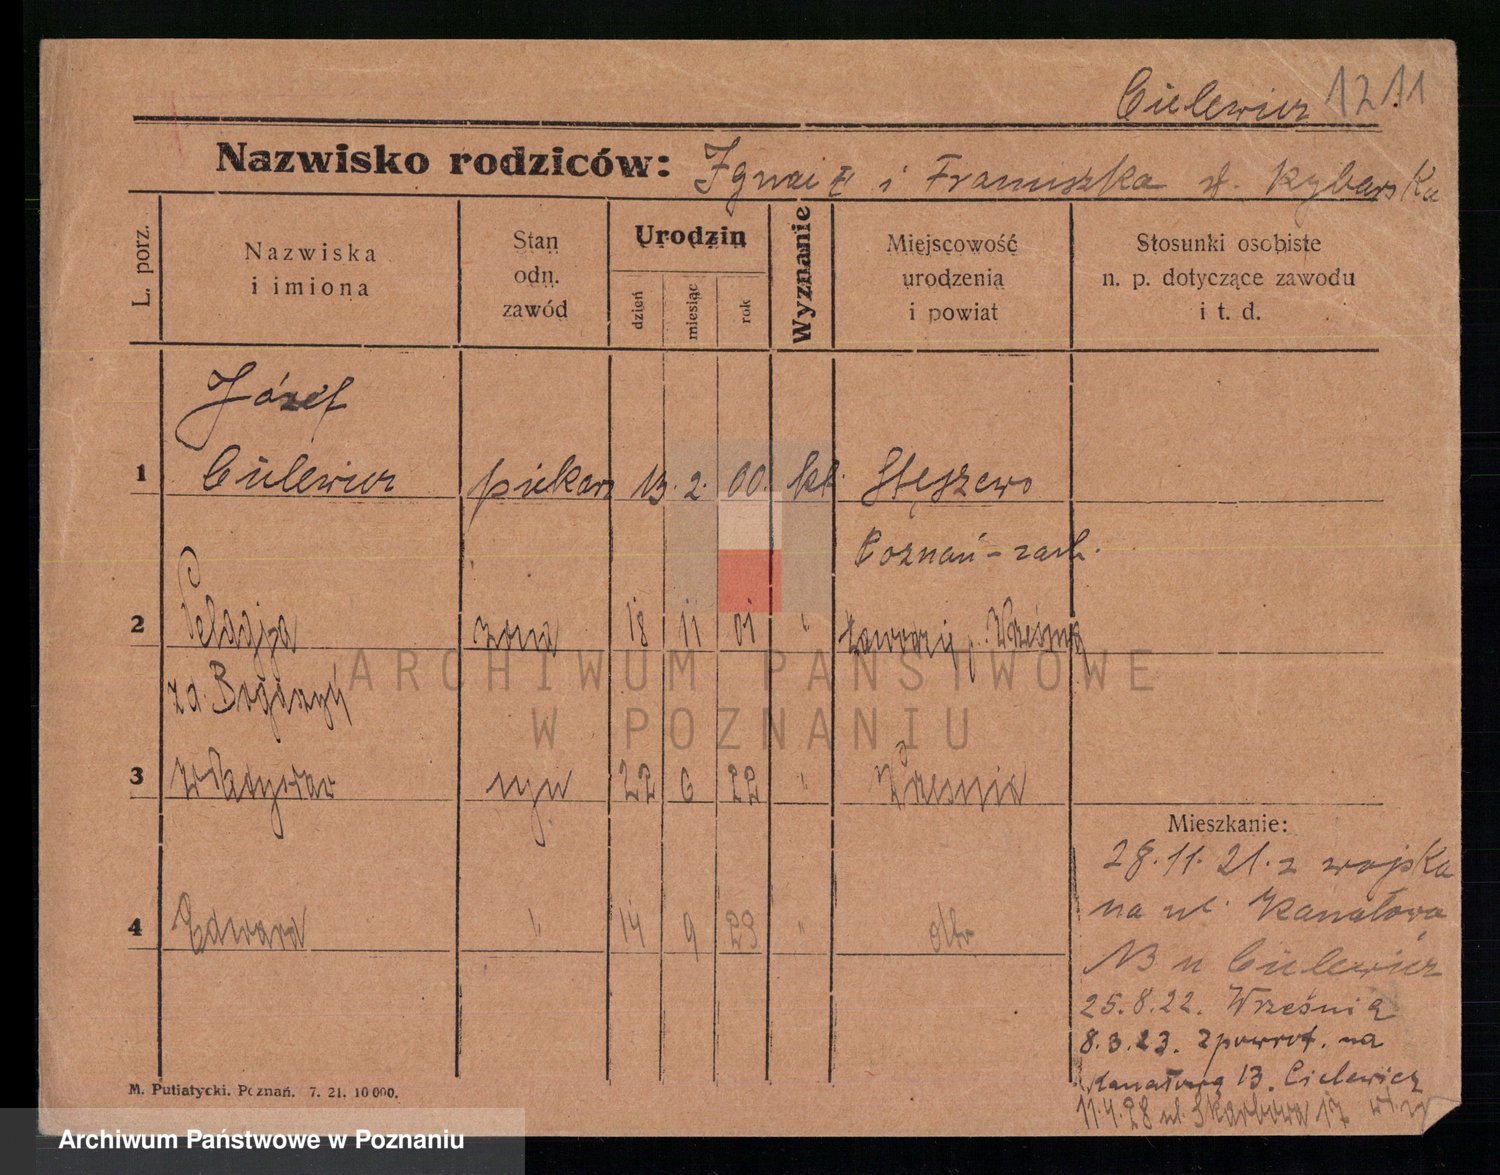 Cielewicz 1211
Nazwisko rodziców: Ignac i Franciszka d. Rybarska
L. porz.
Nazwiska i imiona
Stan odn. zawód
Urodzin
dzień miesiąc rok
Wyznanie
Miejscowość urodzenia i powiat
Stosunki osobiste n. p. dotyczące zawodu i t. d.
Józef
1 Cielewicz piekarz 13. 2. 00. kt. Stęszewo
Poznań-zach.
2 Pelagja żona 18 11 01 " p. Września
za. Bogdszyń
3 Władysław syn 22 6 22 " Września
Mieszkanie:
28.11.21. z wojska
na ul. Kanałowa
4 Edward " 14 9 29 "
13 u Cielewicz
25.8.22. Września
8.3.23. zpowrot. na
Kanałową 13. Cielewicz
11.4.28 ul. Skarbowa 17
M. Putiatycki. Poznań. 7. 21. 10 000.
ARCHIWUM PAŃSTWOWE
W POZNANIU
Archiwum Państwowe w Poznaniu